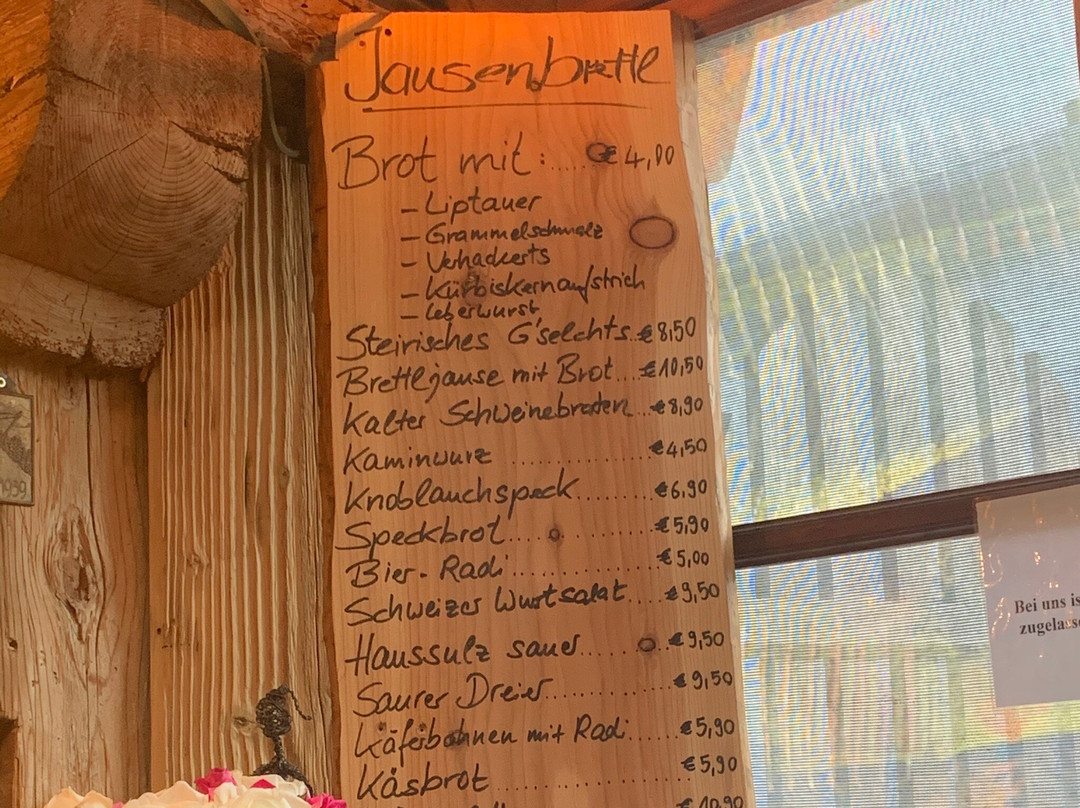 Jausenbrettl
Brot mit:.....€ 4,00
- Liptauer
- Grammelschmalz
- Verhackerts
- Kürbiskernaufstrich
- Leberwurst
Steirisches G'selchts..€ 8,50
Brettljause mit Brot....€ 10,50
Kalter Schweinebraten...€ 8,90
Kaminwurz ..............€ 4,50
Knoblauchspeck.........€ 6,90
Speckbrot................€ 5,90
Bier-Radi................€ 5,00
Schweizer Wurstsalat....€ 9,50
Haussulz sauer..........€ 9,50
Saurer Dreier............€ 9,50
Käferbohnen mit Radi......€ 5,90
Kåsbrot..................€ 5,90
€ 10,90
1939
Bei uns is
zugelass